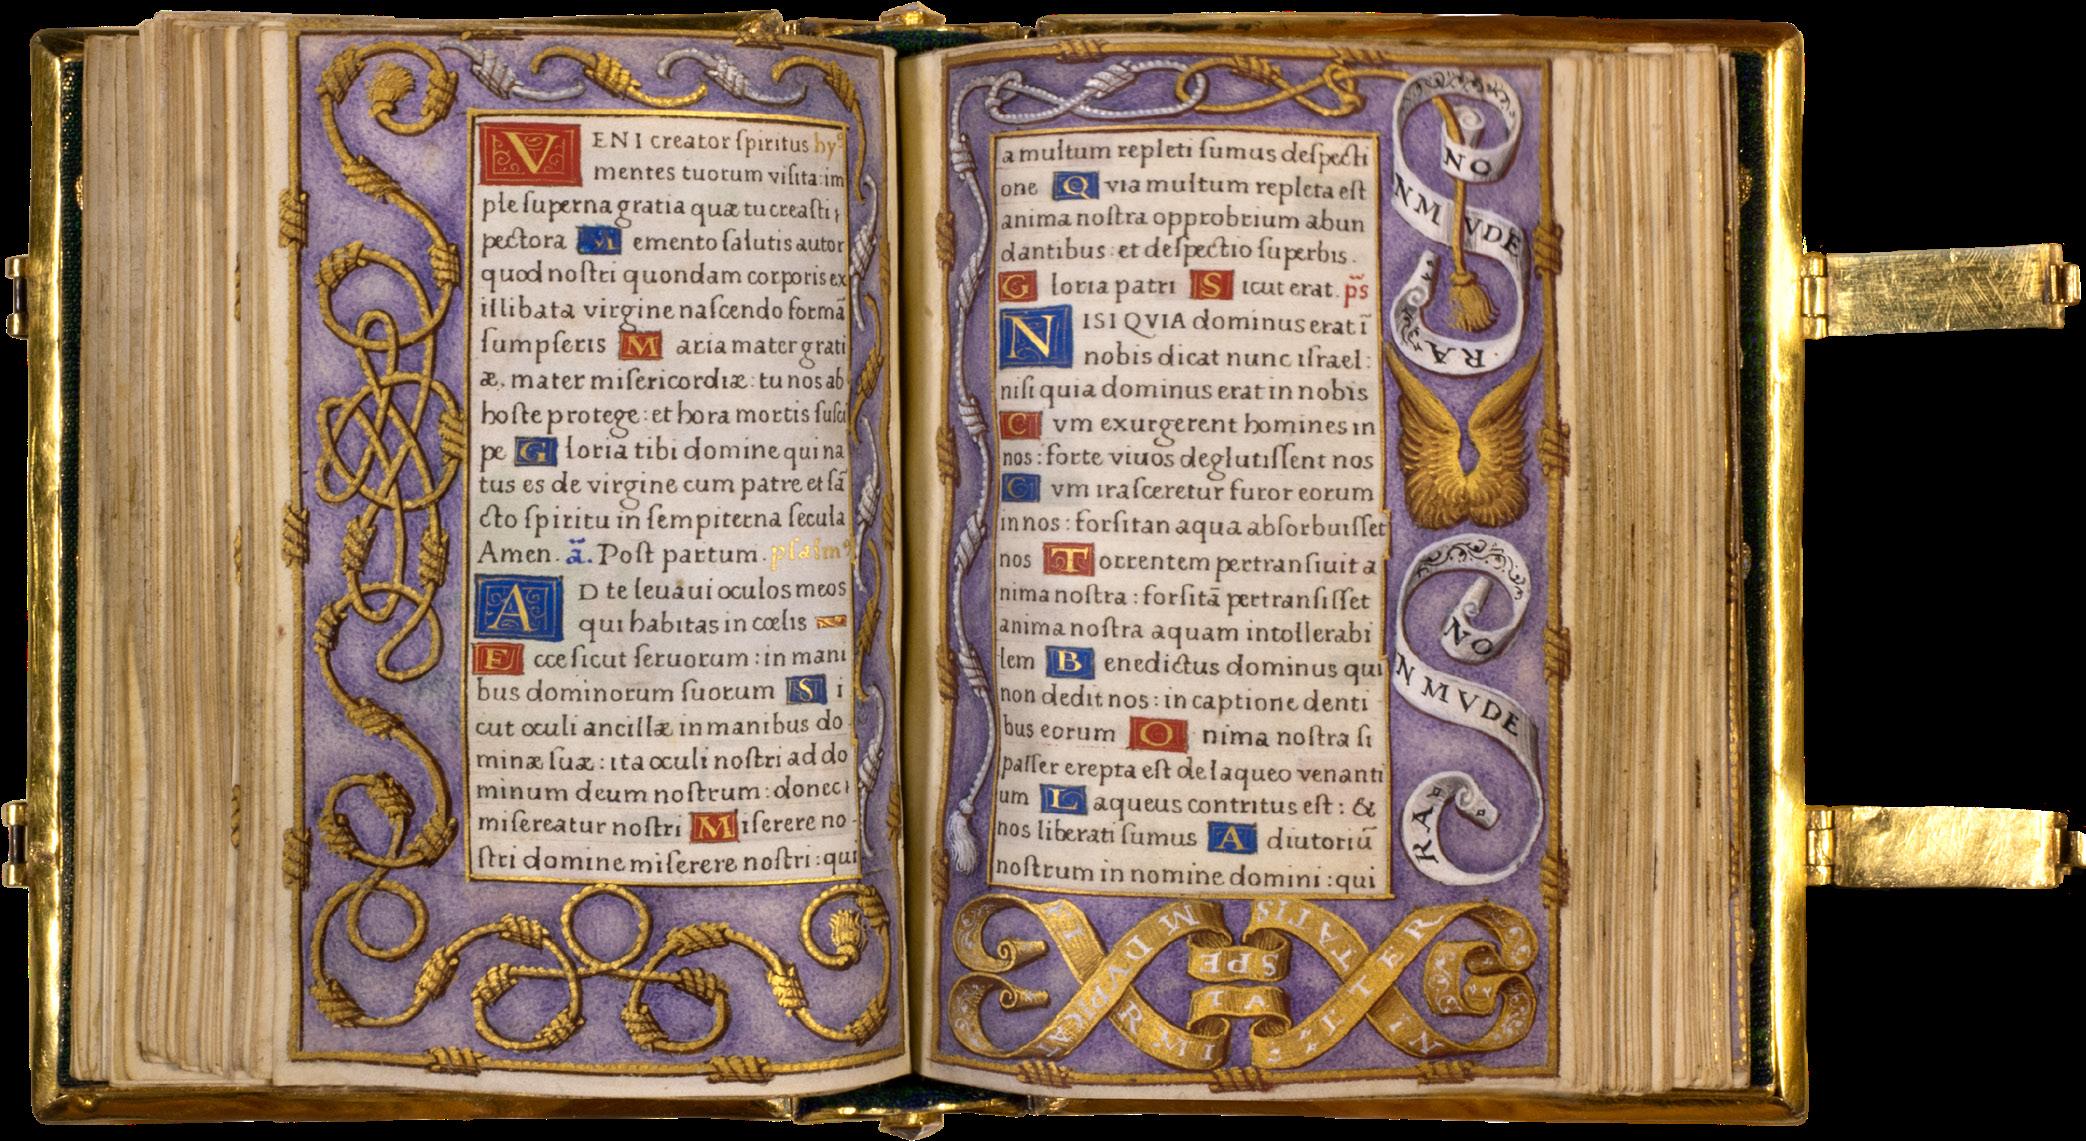 VENI creator ſpiritus hyᵒ
mentes tuorum viſita: im
ple ſuperna gratia quæ tu creaſti,
pectora Memento ſalutis autor
quod noſtri quondam corporis ex
illibata virgine naſcendo formā
ſumpſeris Maria mater grati
æ, mater miſericordiæ: tu nos ab
hoſte protege: et hora mortis ſuſci
pe Gloria tibi domine qui na
tus es de virgine cum patre et ſā
cto ſpiritu in ſempiterna ſecula
Amen. ā. Poſt partum. pſalmᵒ
AD te leuaui oculos meos
qui habitas in cœlis
Ecce ſicut ſeruorum: in mani
bus dominorum ſuorum Si
cut oculi ancillæ in manibus do
minæ ſuæ: ita oculi noſtri ad do
minum deum noſtrum: donec
miſereatur noſtri Miſerere no
ſtri domine miſerere noſtri: qui
a multum repleti ſumus deſpecti
one Qvia multum repleta eſt
anima noſtra opprobrium abun
dantibus: et deſpectio ſuperbis.
Gloria patri Sicut erat. p̄s
NISI QVIA dominus erat ī
nobis dicat nunc iſrael:
niſi quia dominus erat in nobis
Cvm exurgerent homines in
nos: forte viuos deglutiſſent nos
Cvm iraſceretur furor eorum
in nos: forſitan aqua abſorbuiſſet
nos Torrentem pertranſiuit a
nima noſtra: forſitā pertranſiſſet
anima noſtra aquam intollerabi
lem Benedictus dominus qui
non dedit nos: in captione denti
bus eorum Onima noſtra ſi
paſſer erepta eſt de laqueo venanti
um Laqueus contritus eſt: &
nos liberati ſumus Adiutoriū
noſtrum in nomine domini: qui
NO
NMVDE
RA
NO
NMVDE
RA
SPE